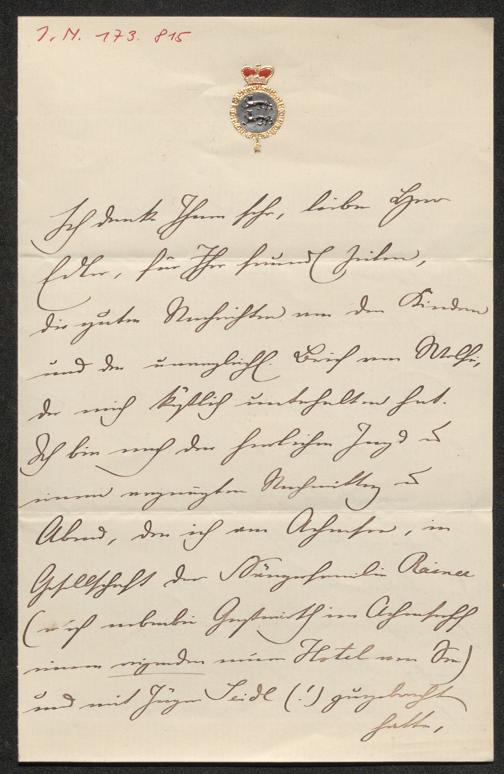 I. N. 173.815
Ich danke Ihnen sehr, lieber Herr
Edler, für Ihre freundl. Zeilen,
die guten Nachrichten von den Kindern
und den unvergleichl. Brief von
der mich köstlich unterhalten hat.
Ich bin nach der herrlichen Jagd u
einem vergnügten Nachmittag u
Abend, den ich am Achensee, in
Gesellschaft der Sängerfamilie Rainer
(nebenbei Gastwirth im
einem eigenen neuen Hotel am See)
und mit Jäger Seidl (!) zugebracht
hatte,